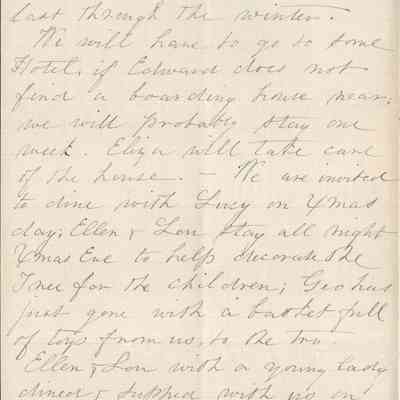 last through the winter.
We will have to go to some
Hotel, if Edward does not
find a boarding house near,
we will probably stay one
week. Eliza will take care
of the house. — We are invited
to dine with Lucy on Xmas
day; Ellen & Lou stay all night
Xmas Eve to help decorate the
Tree for the children; Geo has
just gone with a basket full
of toys from us, to the tree.
Ellen & Lou with a young lady
dined, & supped with us on